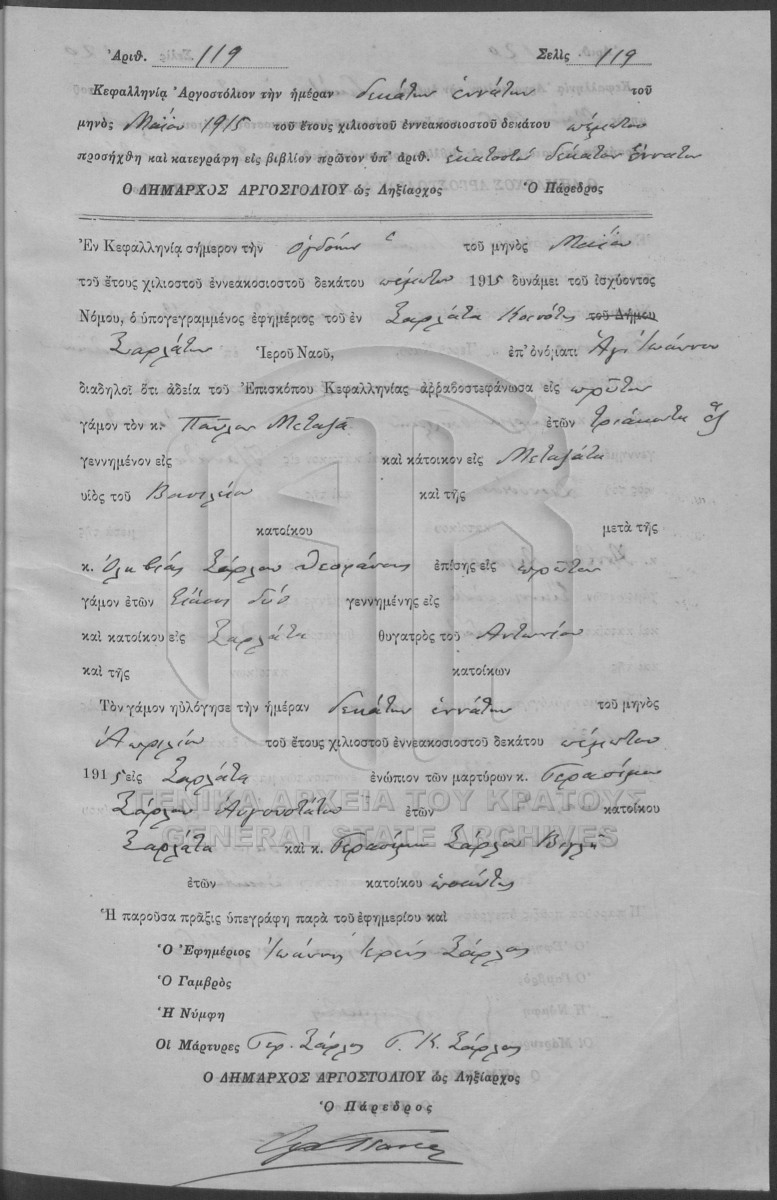 Ἀριθ. 119 Σελὶς 119
Κεφαλληνίᾳ Ἀργοστόλιον τὴν ἡμέραν δεκάτην ἐννάτην τοῦ
μηνὸς Μαΐου 1915 τοῦ ἔτους χιλιοστοῦ ἐννεακοσιοστοῦ δεκάτου πέμπτου
προσήχθη καὶ κατεγράφη εἰς βιβλίον πρῶτον ὑπ' ἀριθ. ἑκατοστὸν δέκατον ἔννατον
Ὁ ΔΗΜΑΡΧΟΣ ΑΡΓΟΣΤΟΛΙΟΥ ὡς Ληξίαρχος Ὁ Πάρεδρος
Ἐν Κεφαλληνίᾳ σήμερον τὴν ὀγδόην τοῦ μηνὸς Μαΐου
τοῦ ἔτους χιλιοστοῦ ἐννεακοσιοστοῦ δεκάτου πέμπτου 1915 δυνάμει τοῦ ἰσχύοντος
Νόμου, ὁ ὑπογεγραμμένος ἐφημέριος τοῦ ἐν Ζαρλάτα Κοινότης τοῦ Δήμου
Ζαρλάτων Ἱεροῦ Ναοῦ, ἐπ' ὀνόματι Ἁγ. Ἰωάννου
διαδηλοῖ ὅτι ἀδείᾳ τοῦ Ἐπισκόπου Κεφαλληνίας ἀρραβοστεφάνωσα εἰς πρῶτον
γάμον τὸν κ. Παῦλον Μεταξᾶ ἐτῶν τριάκοντα ἓξ
γεννημένον εἰς καὶ κάτοικον εἰς Μεταξάτα
υἱὸς τοῦ Βασιλείου καὶ τῆς
κατοίκου μετὰ τῆς
κ. Ὀλυμβίας Ζάρλου Θεοφάνους ἐπίσης εἰς πρῶτον
γάμον ἐτῶν εἴκοσι δύο γεννημένης εἰς
καὶ κατοίκου εἰς Ζαρλάτα θυγατρὸς τοῦ Ἀντωνίου
καὶ τῆς κατοίκων
Τὸν γάμον ηὐλόγησε τὴν ἡμέραν δεκάτην ἐννάτην τοῦ μηνὸς
Ἀπριλίου τοῦ ἔτους χιλιοστοῦ ἐννεακοσιοστοῦ δεκάτου πέμπτου
1915 εἰς Ζαρλάτα ἐνώπιον τῶν μαρτύρων κ. Γερασίμου
Ζάρλου Αὐγουστάτου ἐτῶν κατοίκου
ΓΕΝΙΚΑ ΑΡΧΕΙΑ ΤΟΥ ΚΡΑΤΟΥΣ
GENERAL STATE ARCHIVES
Ζαρλάτα καὶ κ. Γερασίμου Ζάρλου
ἐτῶν κατοίκου
Ἡ παροῦσα πρᾶξις ὑπεγράφη παρὰ τοῦ ἐφημερίου καὶ
Ὁ Ἐφημέριος Ἰωάννης Ἱερεὺς Ζάρλος
Ὁ Γαμβρὸς
Ἡ Νύμφη
Οἱ Μάρτυρες Γερ. Ζάρλος Γ. Κ. Ζάρλος
Ὁ ΔΗΜΑΡΧΟΣ ΑΡΓΟΣΤΟΛΙΟΥ ὡς Ληξίαρχος
Ὁ Πάρεδρος